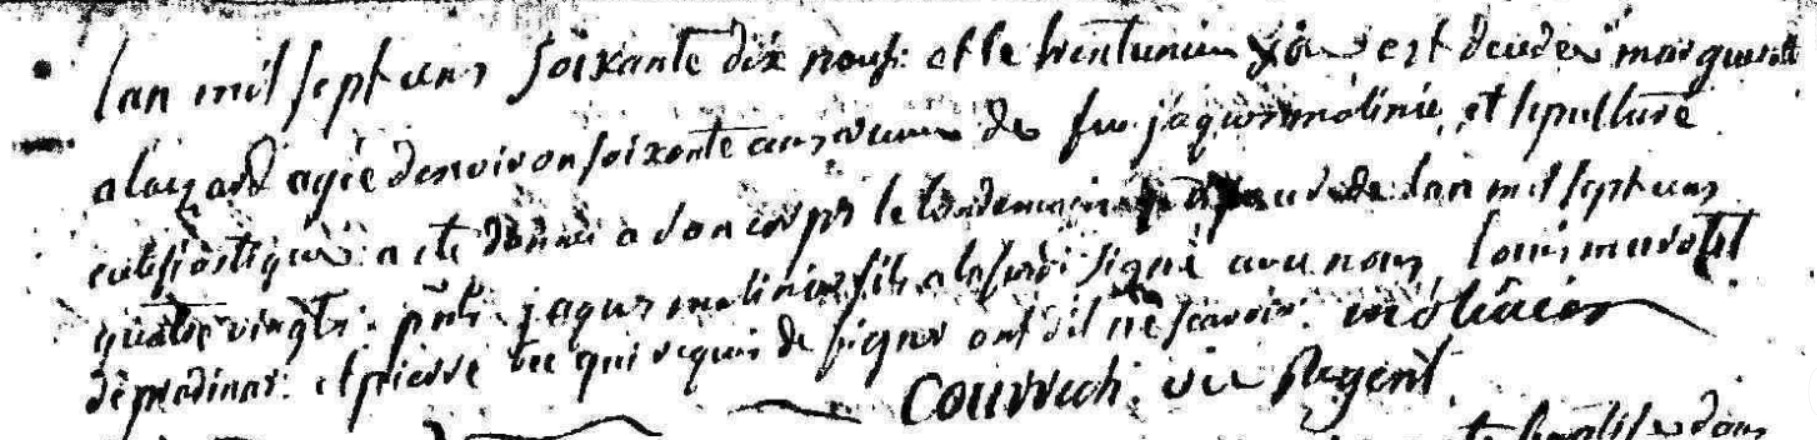 lan mil sept cens soixante dix neuf et le trentunieme jour est decedée marguerite
alauzard agée denviron soixante ans veuve de feu jaques molinié, et sepulture
eclesiastique a eté donnée a son corps le landemain de lan mil sept cens
quatre vingts. pnts jaques molinier fils a la signé avec nous, louis
de pradines. et pierre qui requis de signer ont dit ne scavoir. molinier
Courrech. vic Regent
baptisé dans